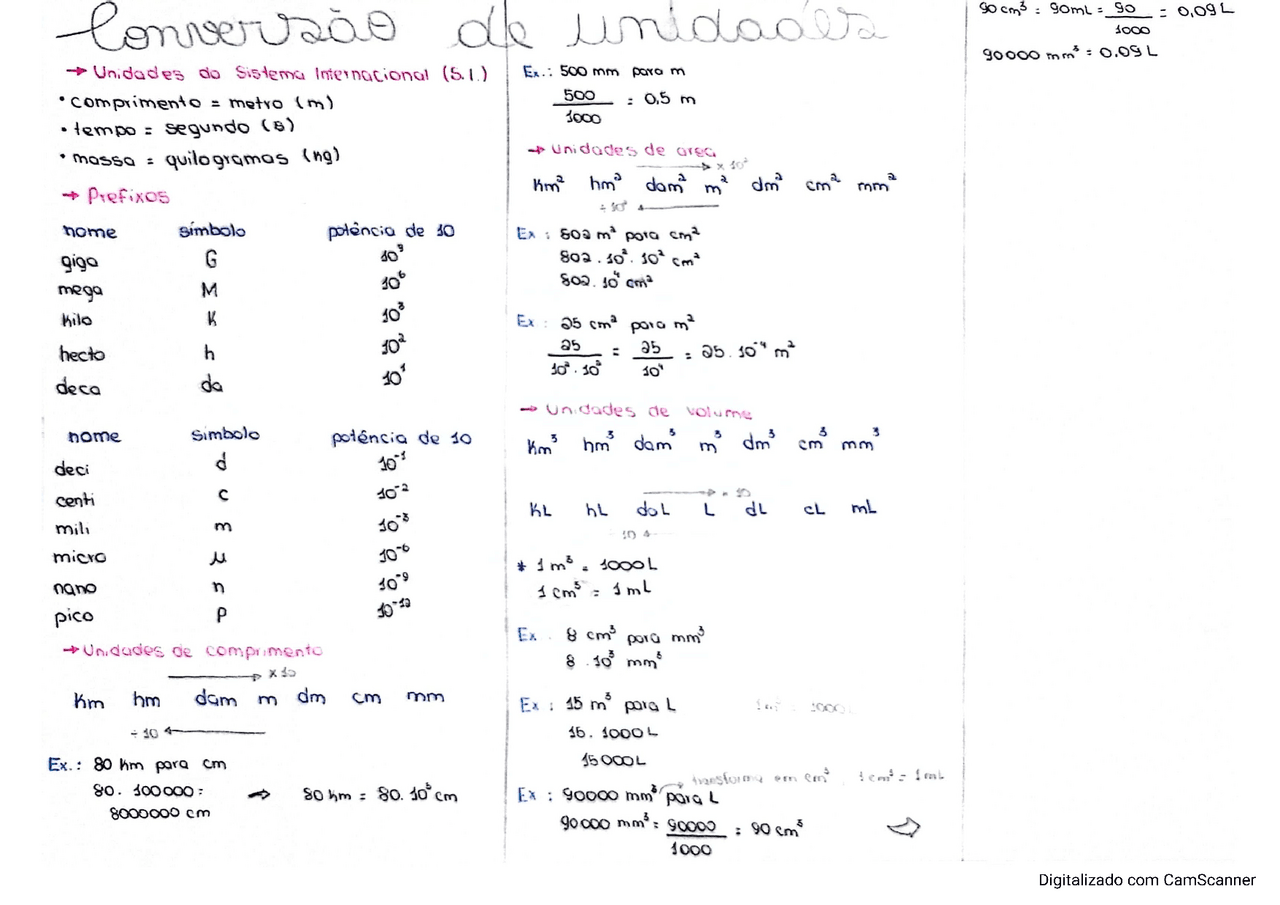 Conversão de unidades
→ Unidades do Sistema Internacional (S.I.)
• comprimento = metro (m)
• tempo = segundo (s)
• massa = quilogramas (kg)
→ Prefixos
nome símbolo potência de 10
giga G 10⁹
mega M 10⁶
kilo K 10³
hecto h 10²
deca da 10¹
nome símbolo potência de 10
deci d 10⁻¹
centi c 10⁻²
mili m 10⁻³
micro μ 10⁻⁶
nano n 10⁻⁹
pico p 10⁻¹²
→ Unidades de comprimento
→ x 10
Km hm dam m dm cm mm
÷ 10 ←
Ex.: 80 km para cm
80. 100000 =
8000000 cm ⇒ 80 km = 80. 10⁵ cm
Ex.: 500 mm para m
500
1000 = 0,5 m
→ Unidades de area
→ x 10²
Km² hm² dam² m² dm² cm² mm²
÷ 10² ←
Ex: 802 m² para cm²
802 . 10² . 10² cm²
802. 10⁴ cm²
Ex: 25 cm² para m²
25 = 25 = 25. 10⁻⁴ m²
10² . 10² 10⁴
→ Unidades de volume
Km³ hm³ dam³ m³ dm³ cm³ mm³
→ 10
KL hL daL L dL cL mL
10 ←
* 1 m³ = 1000L
1 cm³ = 1 mL
Ex. 8 cm³ para mm³
8 . 10³ mm³
Ex: 15 m³ para L 1 m³ = 1000L
15. 1000L
15000L
→ transforma em cm³. 1 cm³ = 1mL
Ex: 90000 mm³ para L
90000 mm³ = 90000 = 90 cm³
1000
90 cm³ = 90mL = 90 = 0,09L
1000
90000 mm³ = 0,09 L
Digitalizado com CamScanner